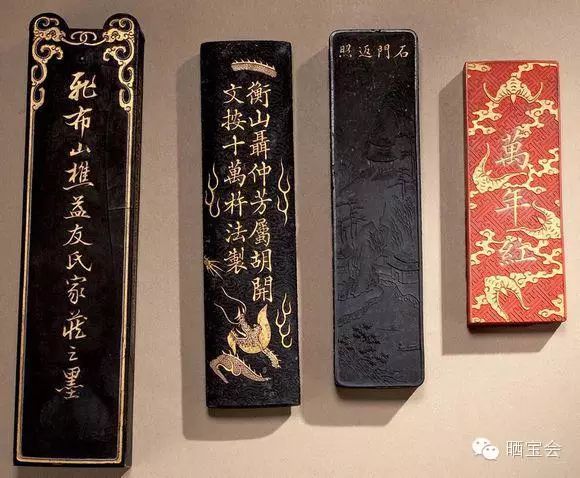 飛布山樵益友氏家藏之墨
衡山聶仲芳屬胡開
文按十萬杵法製
石門返照
萬年紅
晒宝会